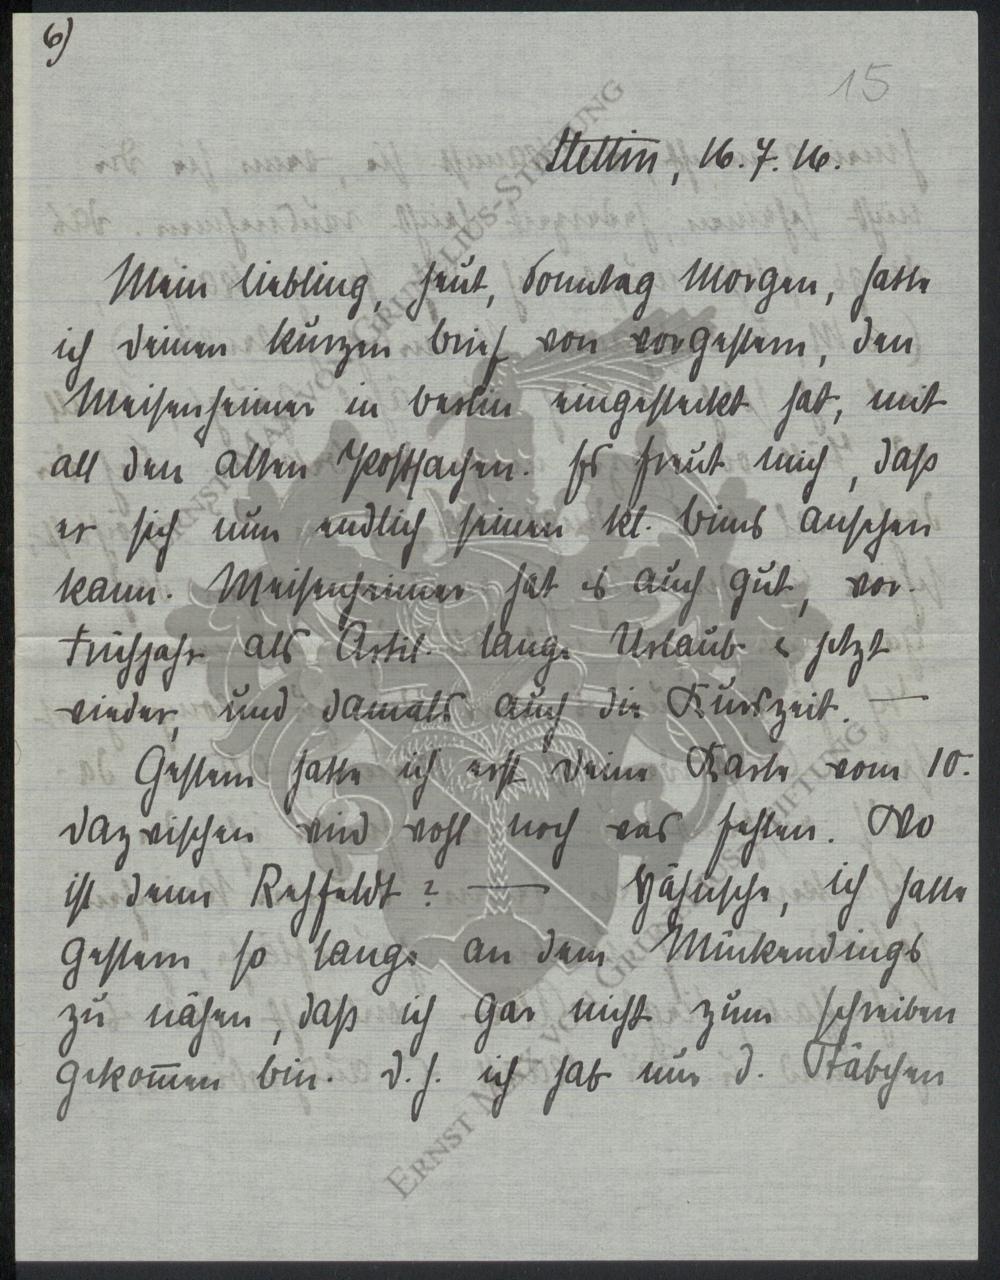 6)
15
Stettin, 16.7.16.
Mein Liebling, heut, Sonntag Morgen, hatte
ich Deinen kurzen Brief von vorgestern, den
Meisenheimer in Berlin eingesteckt hat, mit
all den alten Postsachen. Es freut mich, daß
er sich nun endlich seinen kl. Bims ansehen
kann. Meisenheimer hat es auch gut, vor.
Frühjahr als Artil. lange Urlaub & jetzt
wieder, und damals auch die Kurszeit. —
Gestern hatte ich erst Deine Karte vom 10.
dazwischen wird wohl noch was fehlen. Wo
ist denn Rehfeldt? — , ich hatte
gestern so lange an dem Mückendings
zu nähen, daß ich gar nicht zum schreiben
gekom̅en bin. D.h. ich hab nur d. Stäbchen
ERNST MAX VON GRUNELIUS-STIFTUNG
ERNST MAX VON GRUNELIUS-STIFTUNG